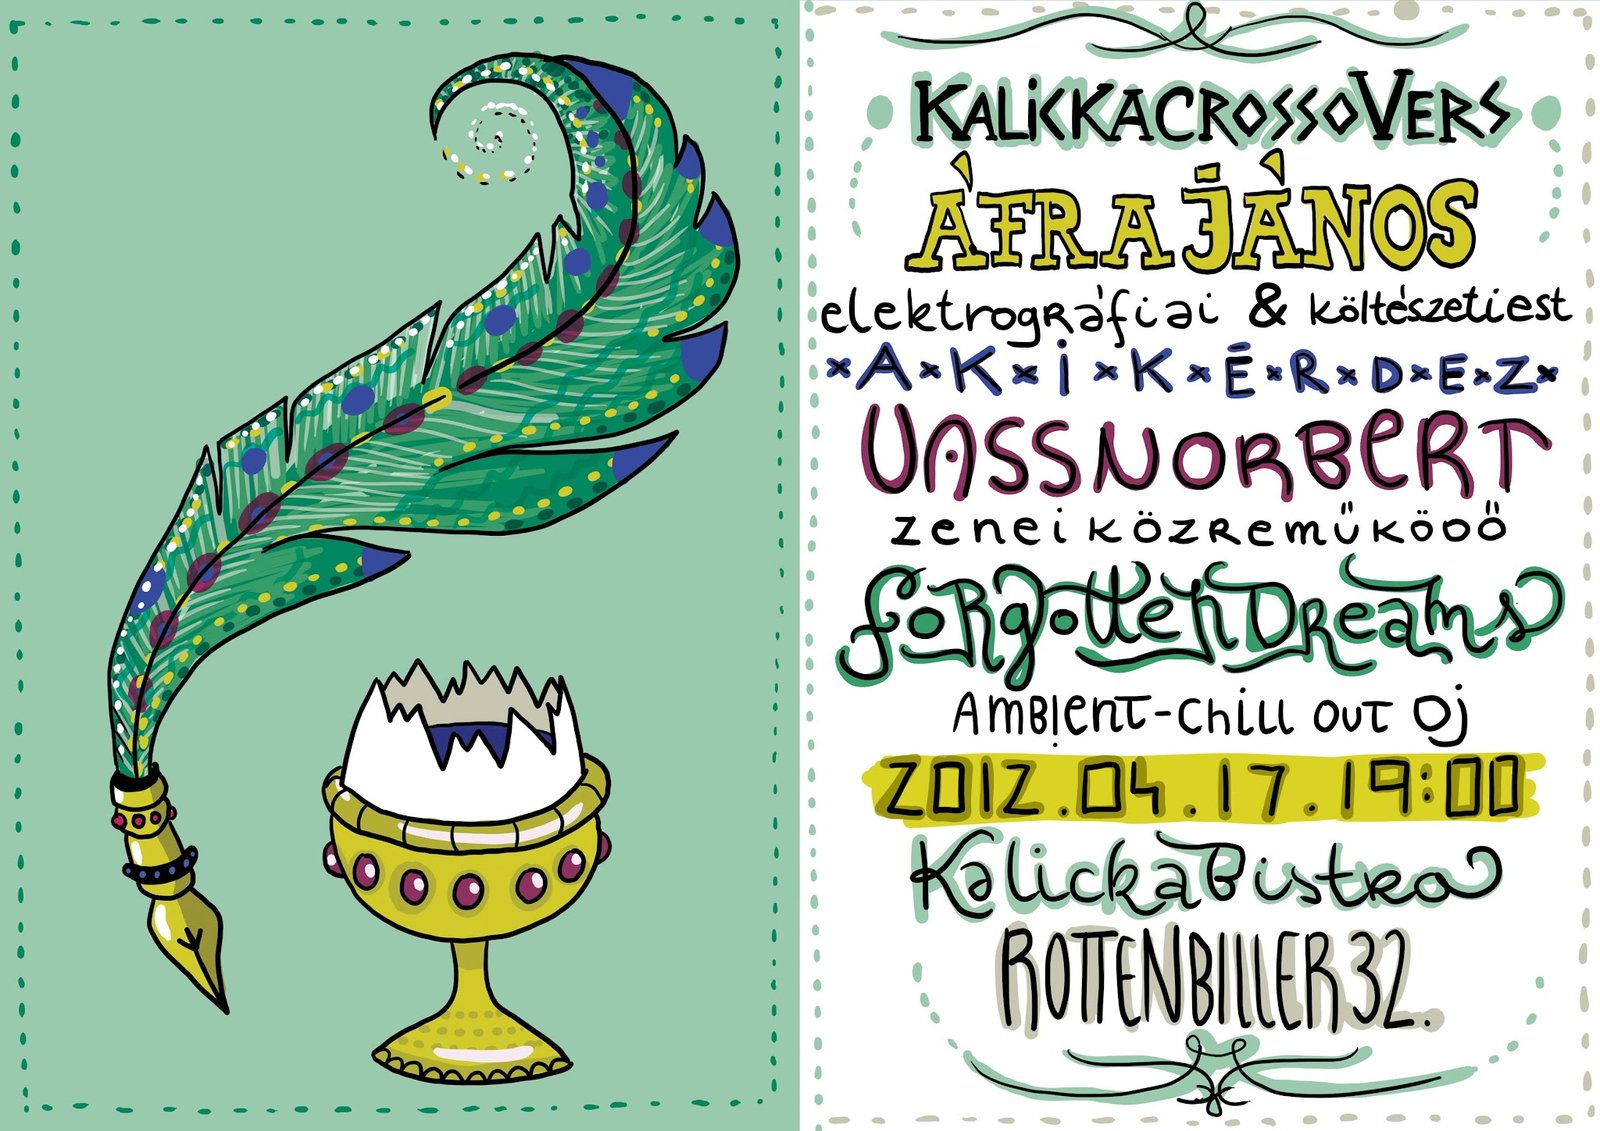 KALICKACROSSOVERS
ÁFRA JÁNOS
elektrográfiai & költészeti est
A K i K É R D E Z
VASS NORBERT
zenei közreműködő
forgotten Dreams
AMBIENT-CHILL OUT DJ
2012.04.17.19:00
Kalicka Bistro
ROTTENBILLER 32.